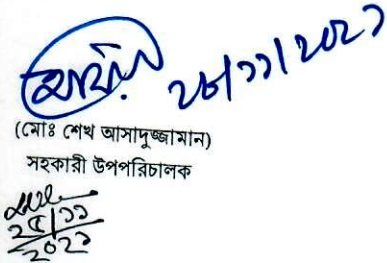 ২৮/১১/২০২১
(মোঃ শেখ আসাদুজ্জামান)
সহকারী উপপরিচালক
২৫/১১
২০২১